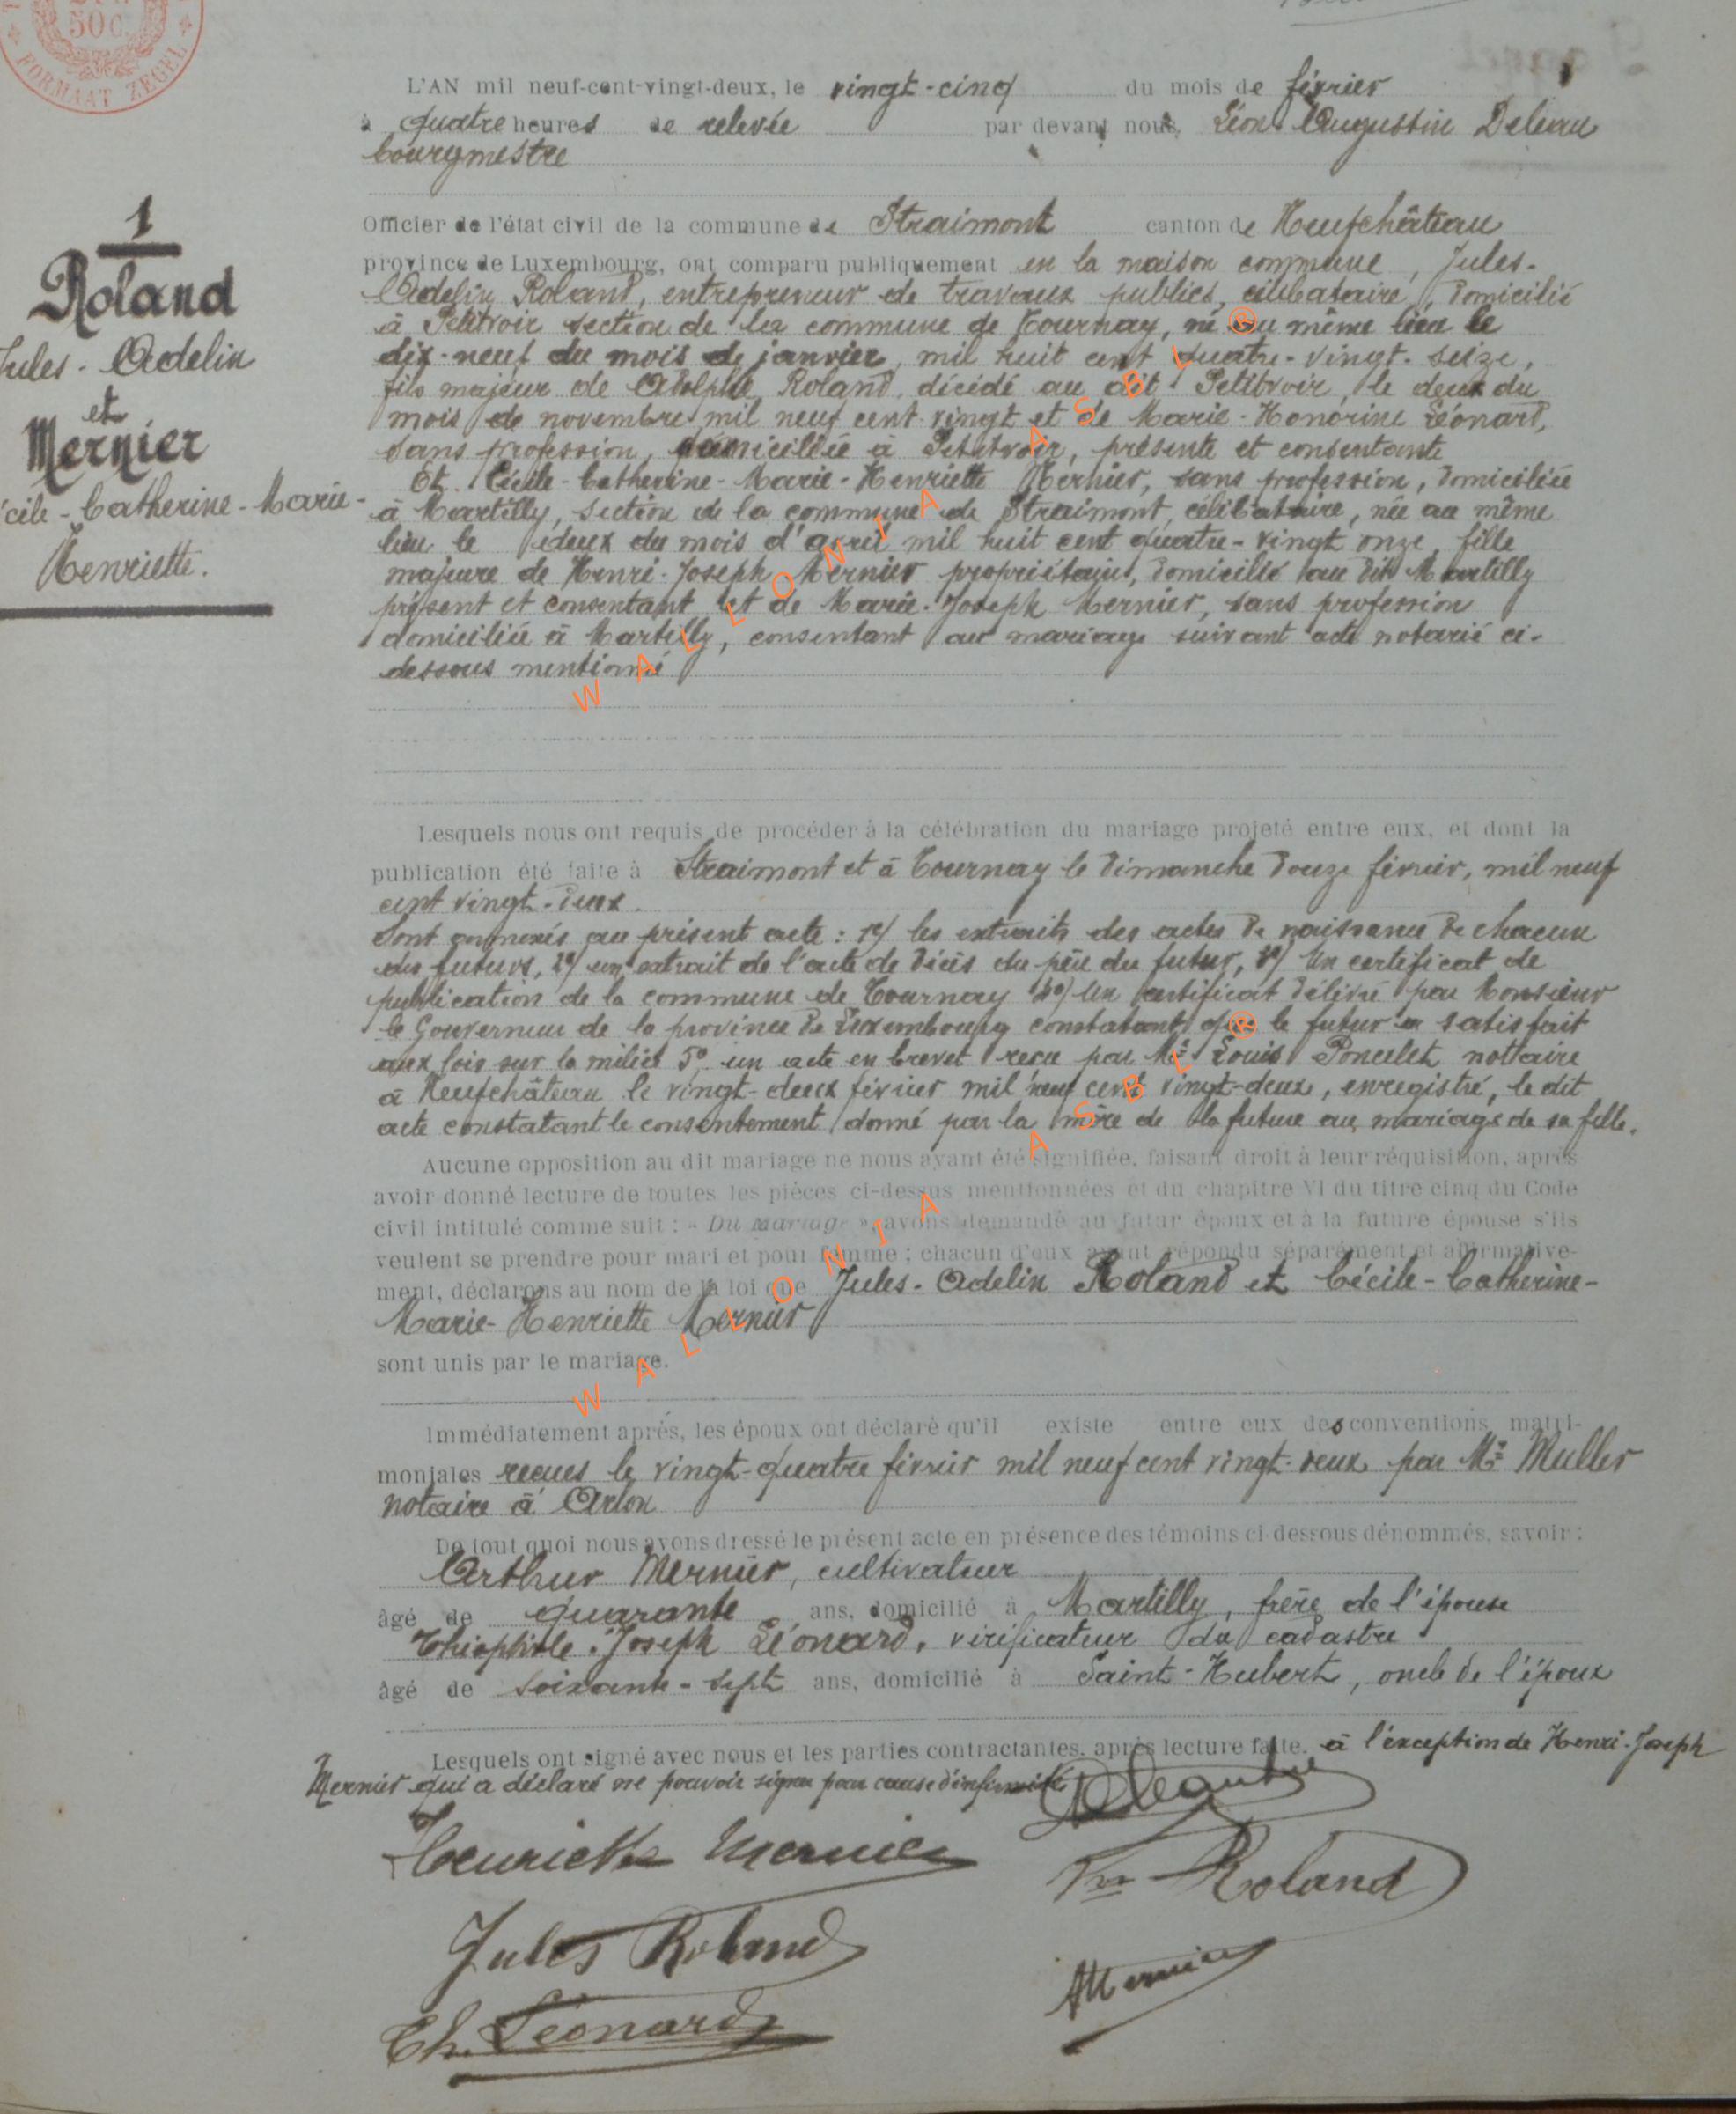 50 C.
FORMAAT ZEGEL
L'AN mil neuf-cent-vingt-deux, le vingt-cinq du mois de février
à quatre heures de relevée par devant nous, Léon Augustin Deleau
bourgmestre
Officier de l'état civil de la commune de Straimont canton de Neufchâteau
province de Luxembourg, ont comparu publiquement en la maison commune, Jules-
Adelin Roland, entrepreneur de travaux publics, célibataire, domicilié
à Petitvoir section de la commune de Tournay, né au même lieu le
dix-neuf du mois de janvier, mil huit cent quatre-vingt-seize,
fils majeur de Adolphe Roland, décédé au dit Petitvoir, le deux du
mois de novembre mil neuf cent vingt et de Marie-Honorine Léonard,
sans profession, domiciliée à Petitvoir, présente et consentante
Et Cécile-Catherine-Marie-Henriette Mernier, sans profession, domiciliée
à Martilly, section de la commune de Straimont, célibataire, née au même
lieu le deux du mois d'avril mil huit cent quatre-vingt onze, fille
majeure de Henri-Joseph Mernier propriétaire, domicilié au dit Martilly
présent et consentant et de Marie-Joseph Mernier, sans profession
domiciliée à Martilly, consentant au mariage suivant acte notarié ci-
dessous mentionné
1
Roland
Jules-Adelin
et
Mernier
cile-Catherine-Marie-
Henriette.
Lesquels nous ont requis de procéder à la célébration du mariage projeté entre eux, et dont la
publication été faite à Straimont et à Tournay le dimanche douze février, mil neuf
cent vingt-deux.
Sont annexés au présent acte : 1°/ les extraits des actes de naissance de chacun
des futurs, 2°/ un extrait de l'acte de décès du père du futur, 3°/ Un certificat de
publication de la commune de Tournay 4°/ Un certificat délivré par Monsieur
le Gouverneur de la province de Luxembourg constatant que le futur a satisfait
aux lois sur la milice 5° un acte en brevet reçu par Me Louis Poncelet nottaire
à Neufchâteau le vingt-deux février mil neuf cent vingt-deux, enregistré, le dit
acte constatant le consentement donné par la mère de la future au mariage de sa fille.
Aucune opposition au dit mariage ne nous ayant été signifiée, faisant droit à leur réquisition, après
avoir donné lecture de toutes les pièces ci-dessus mentionnées et du chapitre VI du titre cinq du Code
civil intitulé comme suit : « Du Mariage », avons demandé au futur époux et à la future épouse s'ils
veulent se prendre pour mari et pour femme ; chacun d'eux ayant répondu séparément et affirmative-
ment, déclarons au nom de la loi que Jules-Adelin Roland et Cécile-Catherine-
Marie-Henriette Mernier
sont unis par le mariage.
Immédiatement après, les époux ont déclaré qu'il existe entre eux des conventions matri-
moniales reçues le vingt-quatre février mil neuf cent vingt-deux par Me Muller
notaire à Arlon
De tout quoi nous avons dressé le présent acte en présence des témoins ci-dessous dénommés, savoir :
Arthur Mernier, cultivateur
âgé de quarante ans, domicilié à Martilly, frère de l'épouse
Théophile-Joseph Léonard, vérificateur du cadastre
âgé de soixante-sept ans, domicilié à Saint-Hubert, oncle de l'époux
Lesquels ont signé avec nous et les parties contractantes, après lecture faite. à l'exception de Henri-Joseph
Mernier qui a déclaré ne pouvoir signer pour cause d'infirmité
Henriette Mernier
Roland
Jules Roland
AMernier
Th. Léonard
WALLONIA ASBL ®
WALLONIA ASBL ®